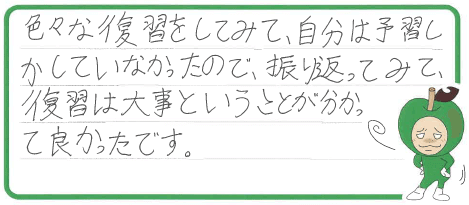 色々な復習をしてみて、自分は予習し
かしていなかったので、振り返ってみて、
復習は大事ということが分かっ
て良かったです。